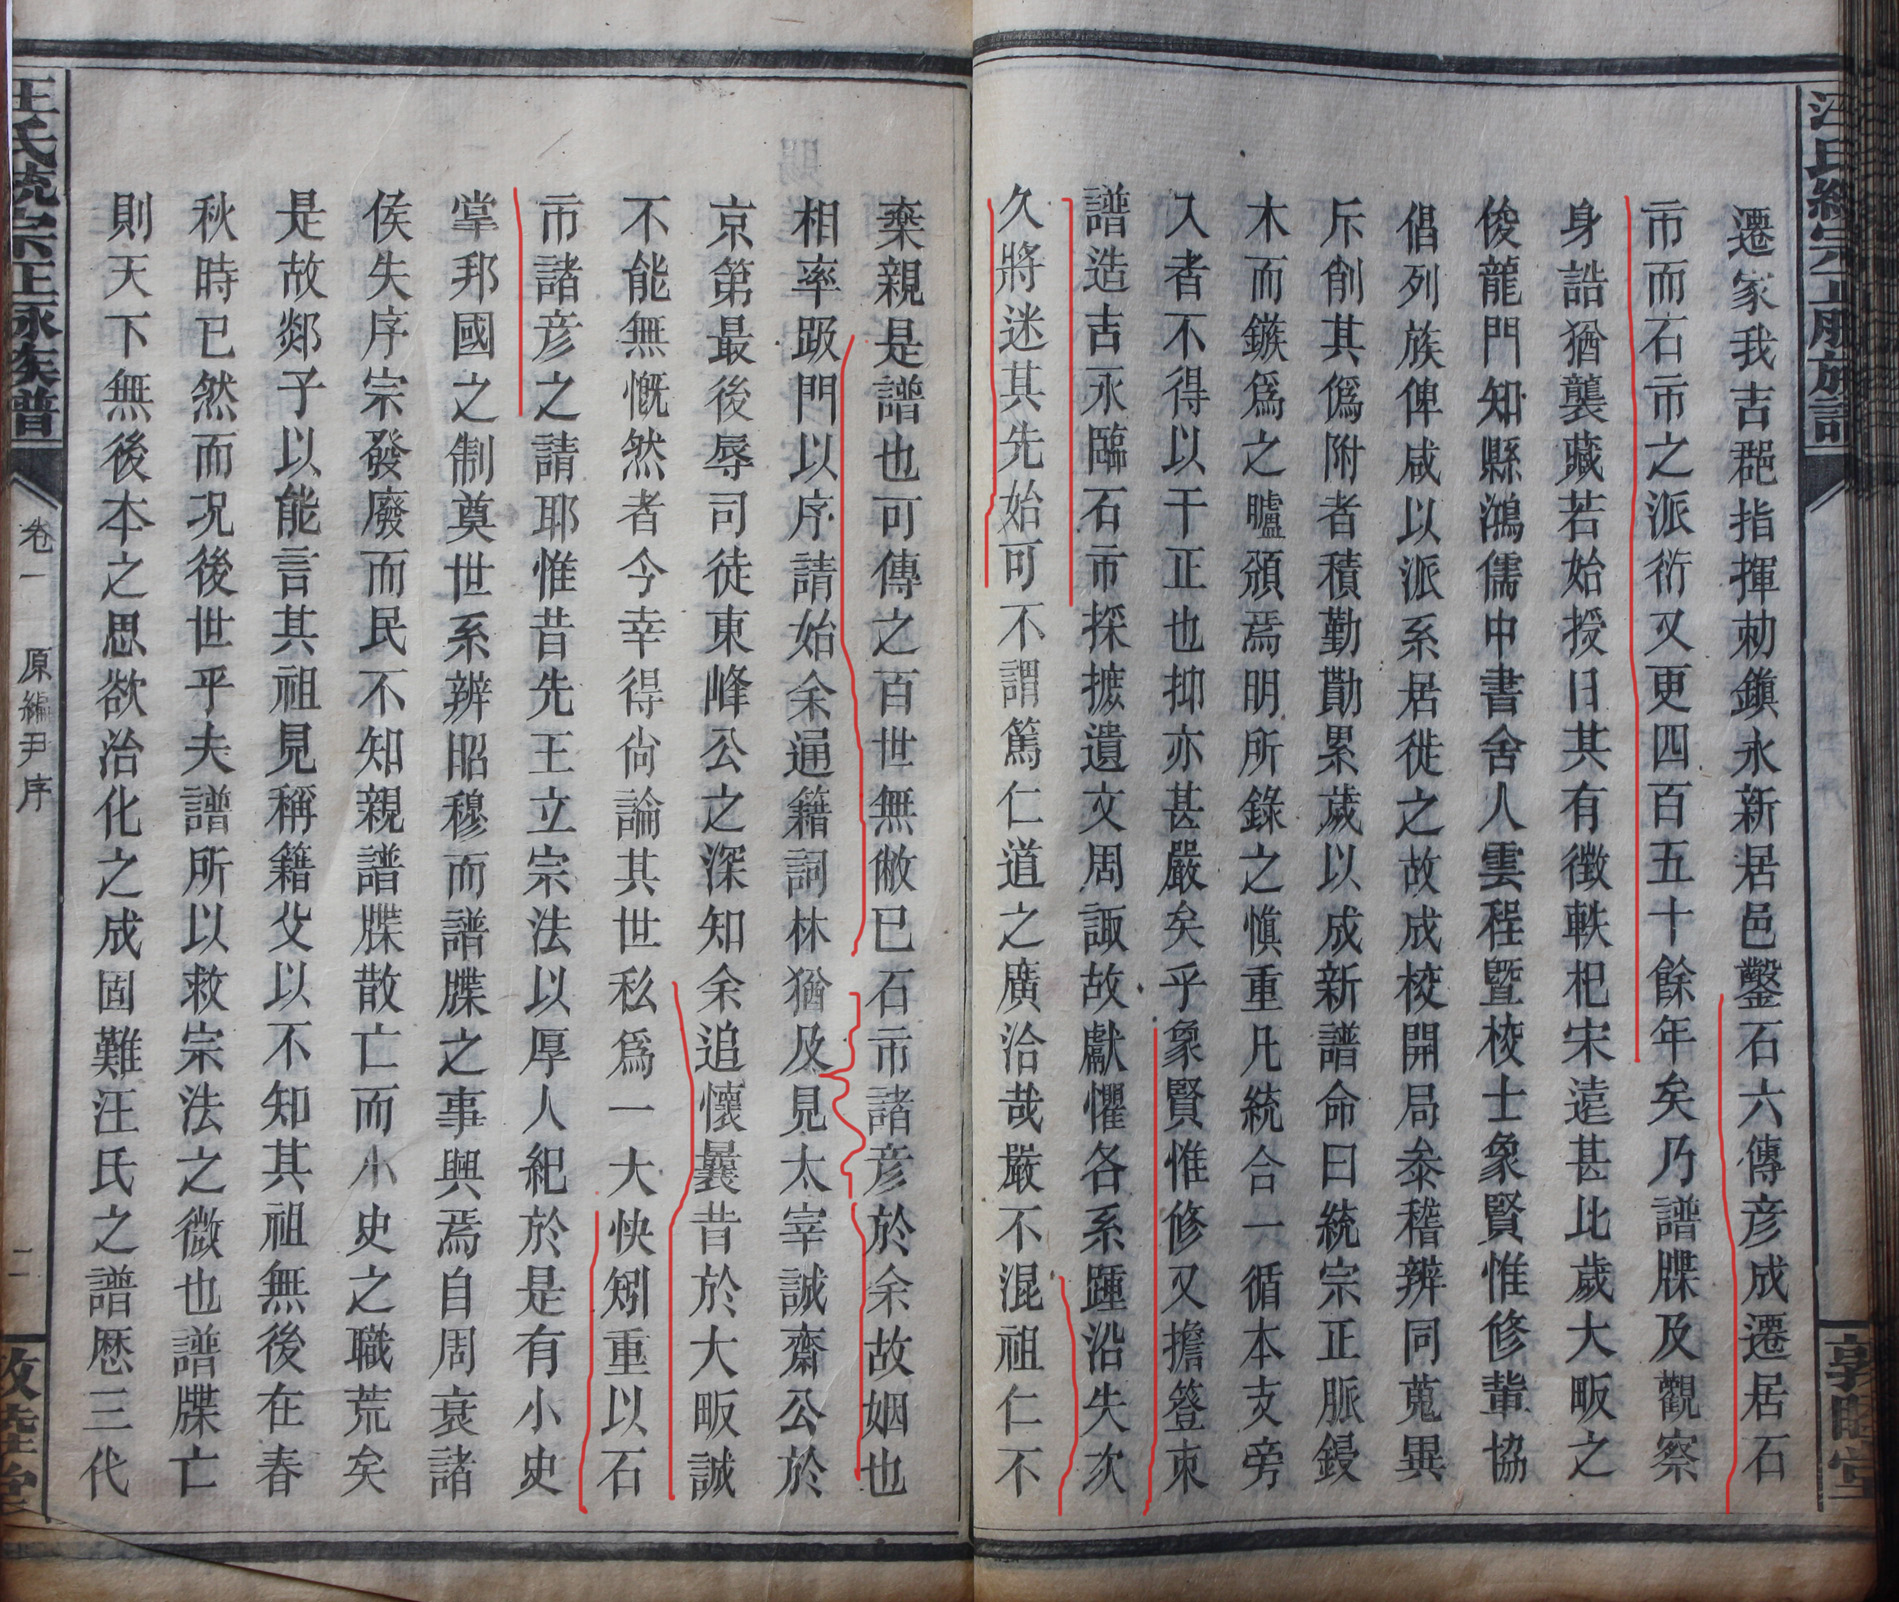 汪氏統宗正脉族譜
敦睦堂
遷家我吉郡指揮勅鎮永新居邑鑿石六傳彦成遷居石
市而石市之派衍又更四百五十餘年矣乃譜牒及觀察
身誥猶襲藏若始授日其有徵軼杞宋遠甚比歲大畈之
俊龍門知縣鴻儒中書舍人雲程暨校士象賢惟修軰協
倡列族俾咸以派系居徙之故成校開局叅稽辨同蒐異
斥削其僞附者積勤勩累歲以成新譜命曰統宗正脈鋟
木而鏃爲之臚頒焉明所錄之慎重凡統合一循本支旁
入者不得以干正也抑亦甚嚴矣乎象賢惟修又擔簦朿
譜造古永臨石市採摭遺文周諏故獻懼各系踵沿失次
久將迷其先始可不謂篤仁道之廣洽哉嚴不混祖仁不
棄親是譜也可傳之百世無敝已石市諸彦於余故姻也
相率趿門以序請始余通籍詞林猶及見太宰誠齋公於
京第最後辱司徒東峰公之深知余追懷曩昔於大畈誠
不能無慨然者今幸得尙論其世私爲一大快矧重以石
市諸彦之請耶惟昔先王立宗法以厚人紀於是有小史
掌邦國之制奠世系辨昭穆而譜牒之事興焉自周衰諸
侯失序宗發廢而民不知親譜牒散亡而小史之職荒矣
是故郯子以能言其祖見稱籍父以不知其祖無後在春
秋時已然而况後世乎夫譜所以救宗法之微也譜牒亡
則天下無後本之思欲治化之成固難汪氏之譜歴三代
汪氏統宗正脉族譜
卷一
原編尹序
二
敦睦堂